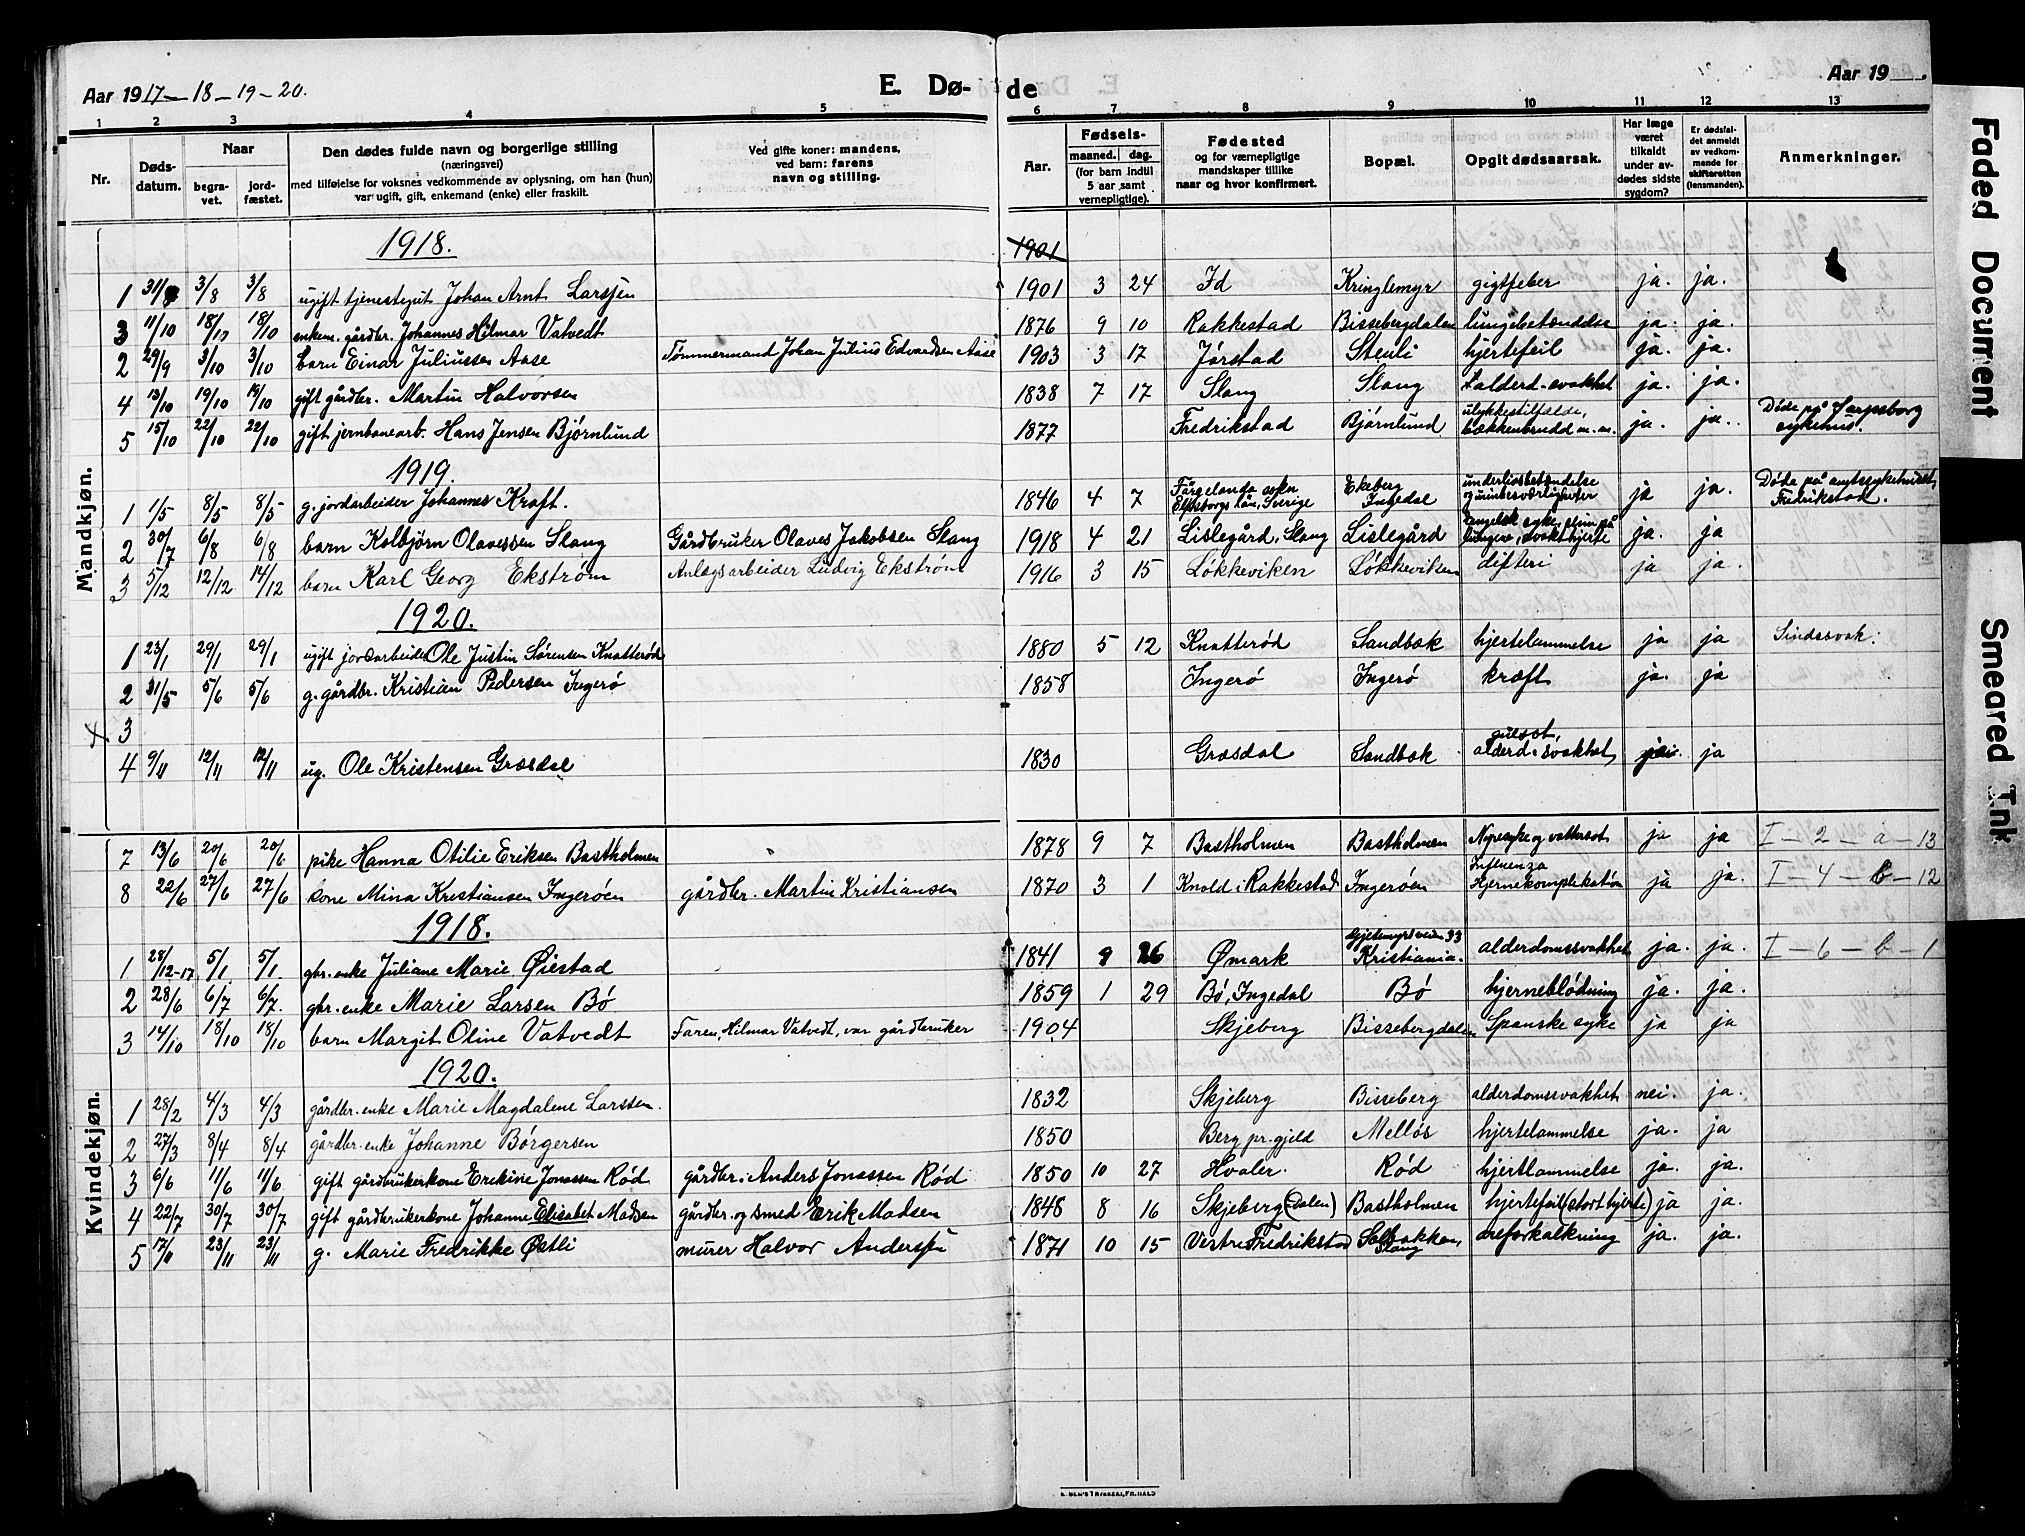 Aar 1917 – 18 – 19 – 20.
E. Dø- de
Aar 19
1 2 3 4 5 6 7 8 9 10 11 12 13
Nr. Døds-datum. Naar begra-vet. jord-fæstet. Den dødes fulde navn og borgerlige stilling (næringsvei) med tilføielse for voksnes vedkommende av oplysning, om han (hun) var ugift, gift, enkemand (enke) eller fraskilt. Ved gifte koner: mandens, ved barn: farens navn og stilling. Aar. Fødsels- maaned. dag. (for barn indtil 5 aar samt vernepligtige). Fødested og for værnepligtige mandskaper tillike naar og hvor konfirmert. Bopæl. Opgit dødsaarsak. Har læge været tilkaldt under av-dødes sidste sygdom? Er dødsfal-det anmeldt av vedkom-mende for skifteretten (lensmanden). Anmerkninger.
Mandkjøn.
1918. 1901
1 31/7 3/8 3/8 ugift tjenestegut Johan Arnt Larssen 1901 3 24 Id Kringlemyr gigtfeber ja. ja.
3 11/10 18/10 18/10 enkem. gårdbr. Johannes Hilmar Vatvedt 1876 9 10 Rakkestad Bissebergdalen lungebetændelse ja. ja.
2 29/9 3/10 3/10 barn Einar Juliussen Aase Tømmermand Johan Julius Edvardsen Aase 1903 3 17 Jørstad Stenli hjertefeil ja. ja.
4 13/10 19/10 19/10 gift gårdbr. Martin Halvorsen 1838 7 17 Slang Slang alderd. svakhet ja. ja.
5 15/10 22/10 22/10 gift jernbanearb. Hans Jensen Bjørnlund 1877 Fredrikstad Bjørnlund ulykkestilfælde, bækkenbrudd m. m. ja. ja. Døde på Sarpsborg sykehus.
1919.
1 1/5 8/5 8/5 g. jordarbeider Johannes Kraft. 1846 4 7 Färgelanda sokn Elfsborgs län, Sverige Ekeberg Ingedal underlivsbetændelse ja ja. Døde på amtssykehuset, Fredrikstad.
2 30/7 6/8 6/8 barn Kolbjørn Olavessen Slang Gårdbruker Olaves Jakobsen Slang 1918 4 21 Lislegård, Slang Lislegård Engelsk syke, slim på lungene, svakt hjerte ja. ja.
3 5/12 12/12 14/12 barn Karl Georg Ekstrøm Anlægsarbeider Ludvig Ekstrøm 1916 3 15 Løkkeviken Løkkeviken difteri ja ja.
1920.
1 23/1 29/1 29/1 ugift jordarbeider Ole Justin Sørensen Knatterød 1880 5 12 Knatterød Sandbæk hjertelammelse ja ja Sindssvak.
2 31/5 5/6 5/6 g. gårdbr. Kristian Pedersen Ingerø 1858 Ingerø Ingerø kræft ja. ja
x 3
4 9/11 12/11 12/11 ug. Ole Kristensen Græsdal 1830 Græsdal Sandbæk gulsot, alderd. svakhet ja
Kvindekjøn.
7 13/6 20/6 20/6 pike Hanna Otilie Eriksen Bastholmen 1878 9 7 Bastholmen Bastholmen Nyresyke og vattersot ja ja I – 2 – a – 13
8 22/6 27/6 27/6 kone Mina Kristiansen Ingerøen gårdbr. Martin Kristiansen 1870 3 1 Knold i Rakkestad Ingerøen Influenza Hjernekomplikation ja ja. I – 4 – b – 12
1918.
1 28/12-17 5/1 5/1. gbr. enke Juliane Marie Øiestad 1841 9 26 Ømark Gjetemyrsveien 33 Kristiania. alderdomssvakhet ja. ja. I – 6 – b – 1
2 28/6 6/7 6/7. gbr. enke Marie Larsen Bø 1859 1 29 Bø, Ingedal Bø hjerneblødning ja. ja.
3 14/10 18/10 18/10 barn Margit Oline Vatvedt Faren, Hilmar Vatvedt, var gårdbruker 1904 Skjeberg Bissebergdalen Spanske syke ja ja
1920.
1 28/2 4/3 4/3 gårdbr. enke Marie Magdalene Larssen. 1832 Skjeberg Bisseberg alderdomssvakhet nei. ja.
2 27/3 8/4 8/4 gårdbr. enke Johanne Børgersen 1850 Berg pr.gjeld Melløs hjertelammelse ja. ja
3 6/6 11/6 11/6 gift gårdbrukerkone Erikine Jonassen Rød gårdbr. Anders Jonassen Rød 1850 10 27 Hvaler. Rød hjertlammelse ja. ja.
4 22/7 30/7 30/7 gift gårdbrukerkone Johanne Elisabet Madsen gårdbr. og smed Erik Madsen 1848 8 16 Skjeberg (Dalen) Bastholmen hjertefeil (stort hjerte) ja ja.
5 17/11 23/11 23/11 g. Marie Fredrikke Østli murer Halvor Andersen 1871 10 15 Vestre Fredrikstad Slang åreforkalkning ja. ja.
Faded Document
Smeared Ink